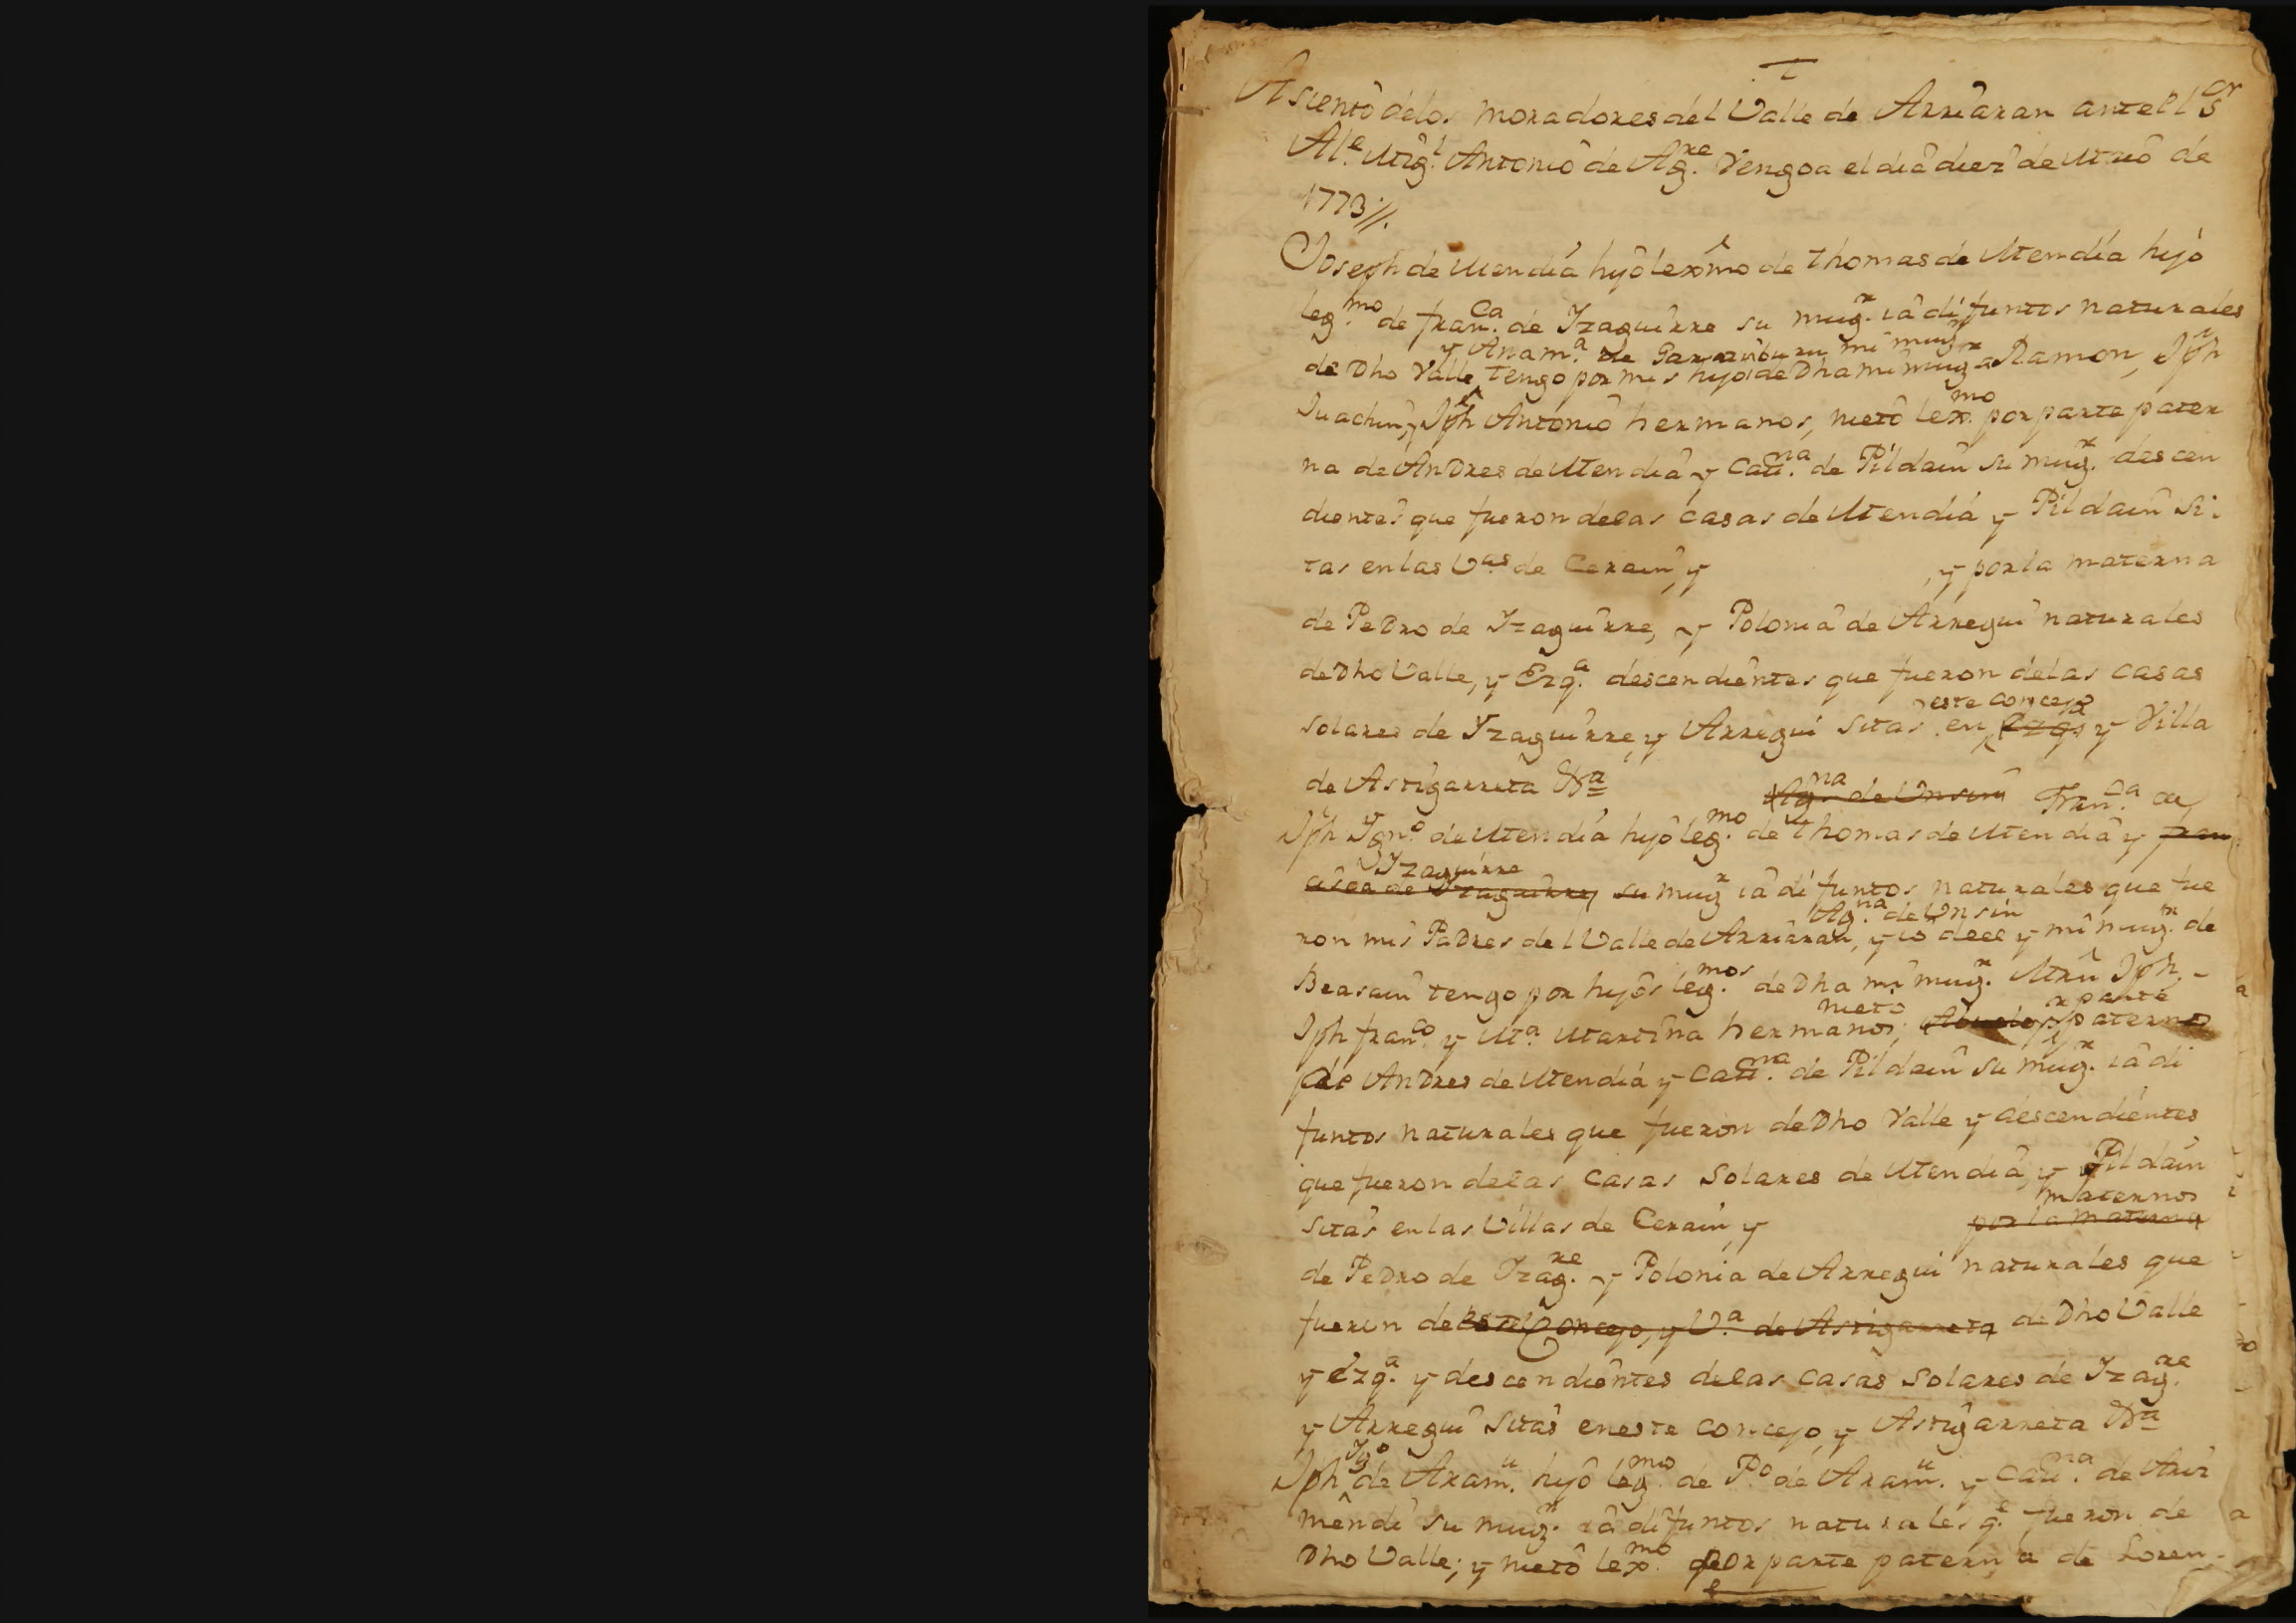 Asiento delos moradores del Valle de Arriaran ante el Sor
Ale. Migl. Antonio de Agre. Yengoa el dia diez de Mzo de
1773//.
Joseph de Mendia hijo lexmo de thomas de Mendia hijo
legmo. de franca. de Yzaguirre su mugr. ia difuntos naturales
y Ana ma. de Garaiburu mi mugr
de Dho Valle, tengo por mis hijos de Dha mi mugr a Ramon, Jph
Juachin, y Jph Antonio hermanos, nieto lexmo. por parte pater
na de Andres de Mendia y Catna. de Pildain su mugr. descen
dientes que fueron delas casas de Mendia y Pildain si-
tas en las Vas. de Cerain, y , y por la materna
de Pedro de Yzaguirre, y Polonia de Arregui naturales
de Dho Valle, y Ezqa. descendientes que fueron delas casas
este concejo
solares de Yzaguirre, y Arregui sitas en Ezqa. y Villa
de Astigarreta &a
Agna. de Unsin Franca. de
Jph Ygno. de Mendia hijo legmo. de thomas de Mendia y fran
Yzaguirre
cisca de Yzaguirre, su mugr ia difuntos naturales que fue
Agna. de Unsin
ron mis Padres del Valle de Arriaran, y io de el y mi mugr. de
Beasain tengo por hijos legmos. de Dha mi mugr. Mrn Jph.-
nieto r parte
Jph franco. y Ma. Martina hermanos; Abuelos paternos
de Andres de Mendia y Catna. de Pildain su mugr. ia di
funtos naturales que fueron de Dho Valle y descendientes
que fueron delas Casas Solares de Mendia, y Pildain
maternos
sitas en las Villas de Cerain, y por la materna
de Pedro de Yzagre. y Polonia de Arregui naturales que
fueron de este Concejo, y Va. de Astigarreta de Dho Valle
y Ezqa. y descendientes delas Casas Solares de Yzagre.
y Arregui sitas en este concejo, y Astigarreta &a
Ygo
Jph de Aramu. hijo legmo. de Po. de Aramu. y Catna. de Ariz
mendi su mugr. ia difuntos naturales qe. fueron de
Dho Valle; y nieto lexmo. por parte paterna de Loren-